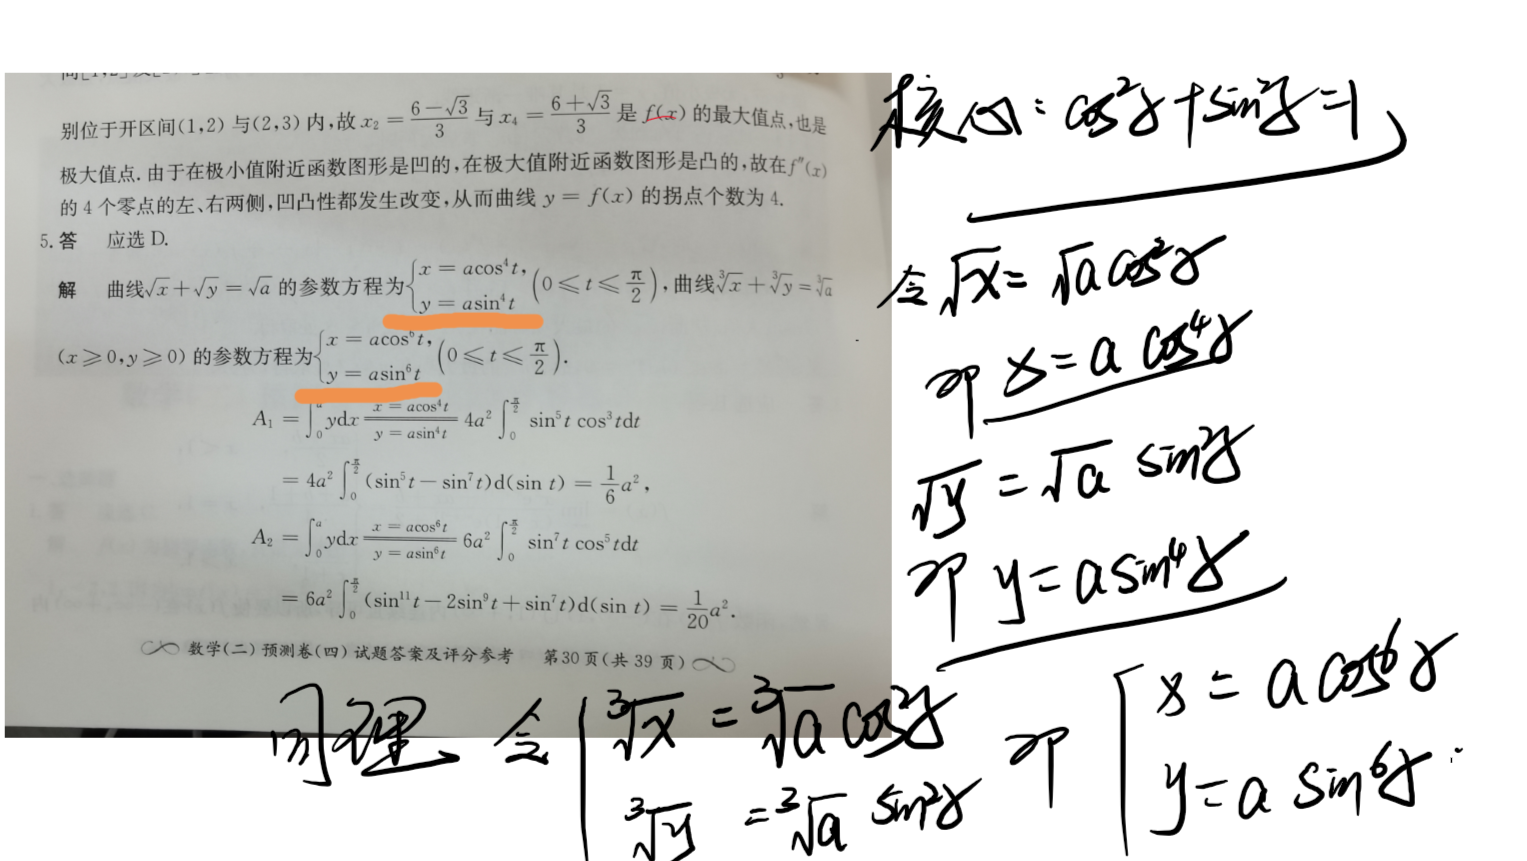 别位于开区间(1,2)与(2,3)内,故x₂ = (6−√3)/3 与 x₄ = (6+√3)/3 是 f(x) 的最大值点,也是
极大值点.由于在极小值附近函数图形是凹的,在极大值附近函数图形是凸的,故在f″(x)
的4个零点的左、右两侧,凹凸性都发生改变,从而曲线 y = f(x) 的拐点个数为4.
5.答 应选D.
解 曲线√x+√y=√a 的参数方程为{x = acos⁴t, y = asin⁴t (0≤t≤π/2),曲线∛x+∛y=∛a
(x≥0,y≥0)的参数方程为{x = acos⁶t, y = asin⁶t (0≤t≤π/2).
A₁ = ∫₀ᵃ ydx (x = acos⁴t / y = asin⁴t) 4a² ∫₀^(π/2) sin⁵t cos³tdt
= 4a² ∫₀^(π/2) (sin⁵t − sin⁷t)d(sin t) = 1/6 a²,
A₂ = ∫₀ᵃ ydx (x = acos⁶t / y = asin⁶t) 6a² ∫₀^(π/2) sin⁷t cos⁵tdt
= 6a² ∫₀^(π/2) (sin¹¹t − 2sin⁹t + sin⁷t)d(sin t) = 1/20 a².
数学(二)预测卷(四)试题答案及评分参考 第30页(共39页)
核心:cos²γ+sin²γ=1
令√x=√a cos²γ
即 x=a cos⁴γ
√y=√a sin²γ
即 y=a sin⁴γ
同理、令 { ∛x=∛a cos²γ
∛y=∛a sin²γ
即 { x=a cos⁶γ
y=a sin⁶γ